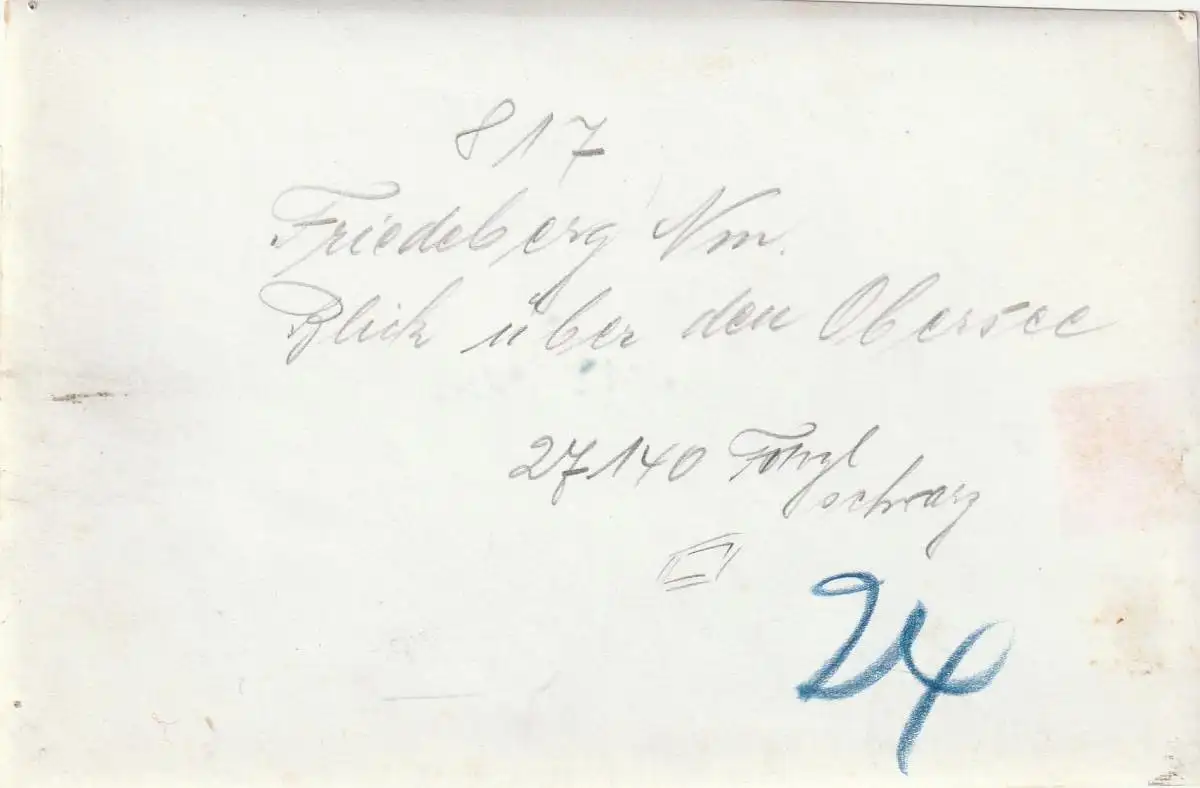 817
Friedeberg Nm.
Blick über den Obersee
27140
schwarz
24